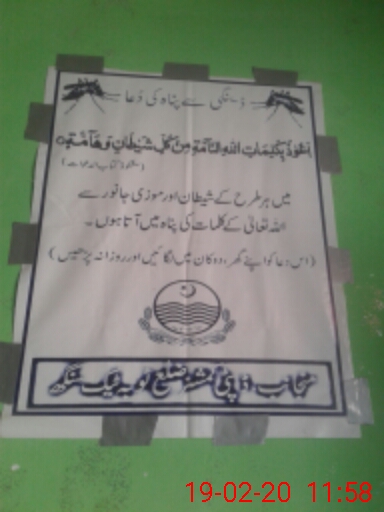 ڈینگی سے پناہ کی دُعا
اَعُوْذُ بِکَلِمَاتِ اللّٰہِ التَّامَّةِ مِنْ کُلِّ شَیْطَانٍ وَّھَآمَّةٍ
میں ہر طرح کے شیطان اور موذی جانور سے
اللہ تعالیٰ کے کلمات کی پناہ میں آتا ہوں۔
(اس دعا کو اپنے گھر، دوکان میں لگائیں اور روزانہ پڑھیں)
منجانب: ڈپٹی کمشنر ضلع ٹوبہ ٹیک سنگھ
19-02-20 11:58